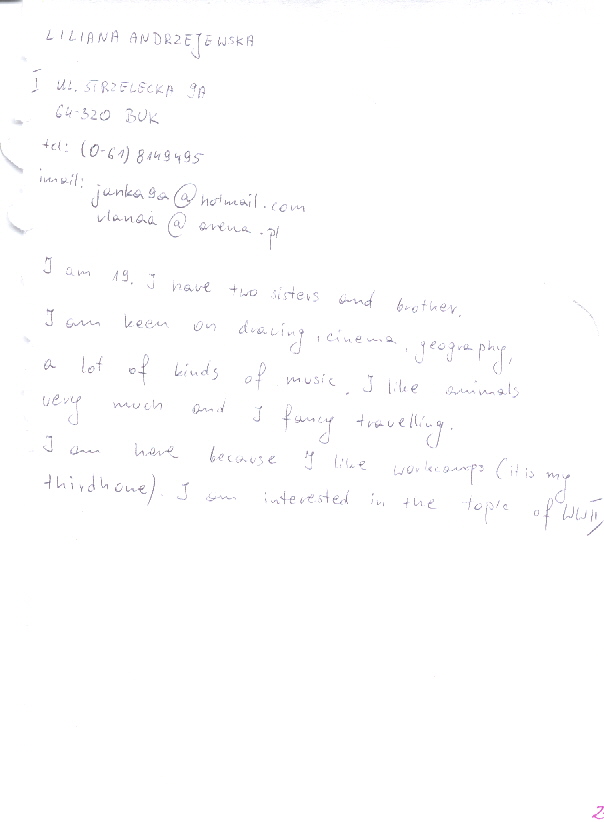 LILIANA ANDRZEJEWSKA
UL. STRZELECKA 9A
64-320 BUK
tel: (0-61) 8149495
imail: janka9a@hotmail.com
vlanaa@arena.pl
I am 19. I have two sisters and brother.
I am keen on drawing, cinema, geography,
a lot of kinds of music. I like animals
very much and I fancy travelling.
I am here because I like workcamps (it is my
third one). I am interested in the topic of WWII
2